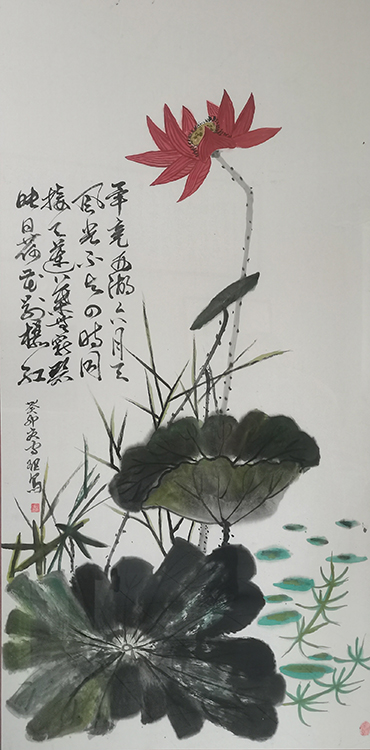 畢竟西湖六月
風光不与四時同
接天蓮葉無窮碧
映日荷花别樣红
癸卯夏雪